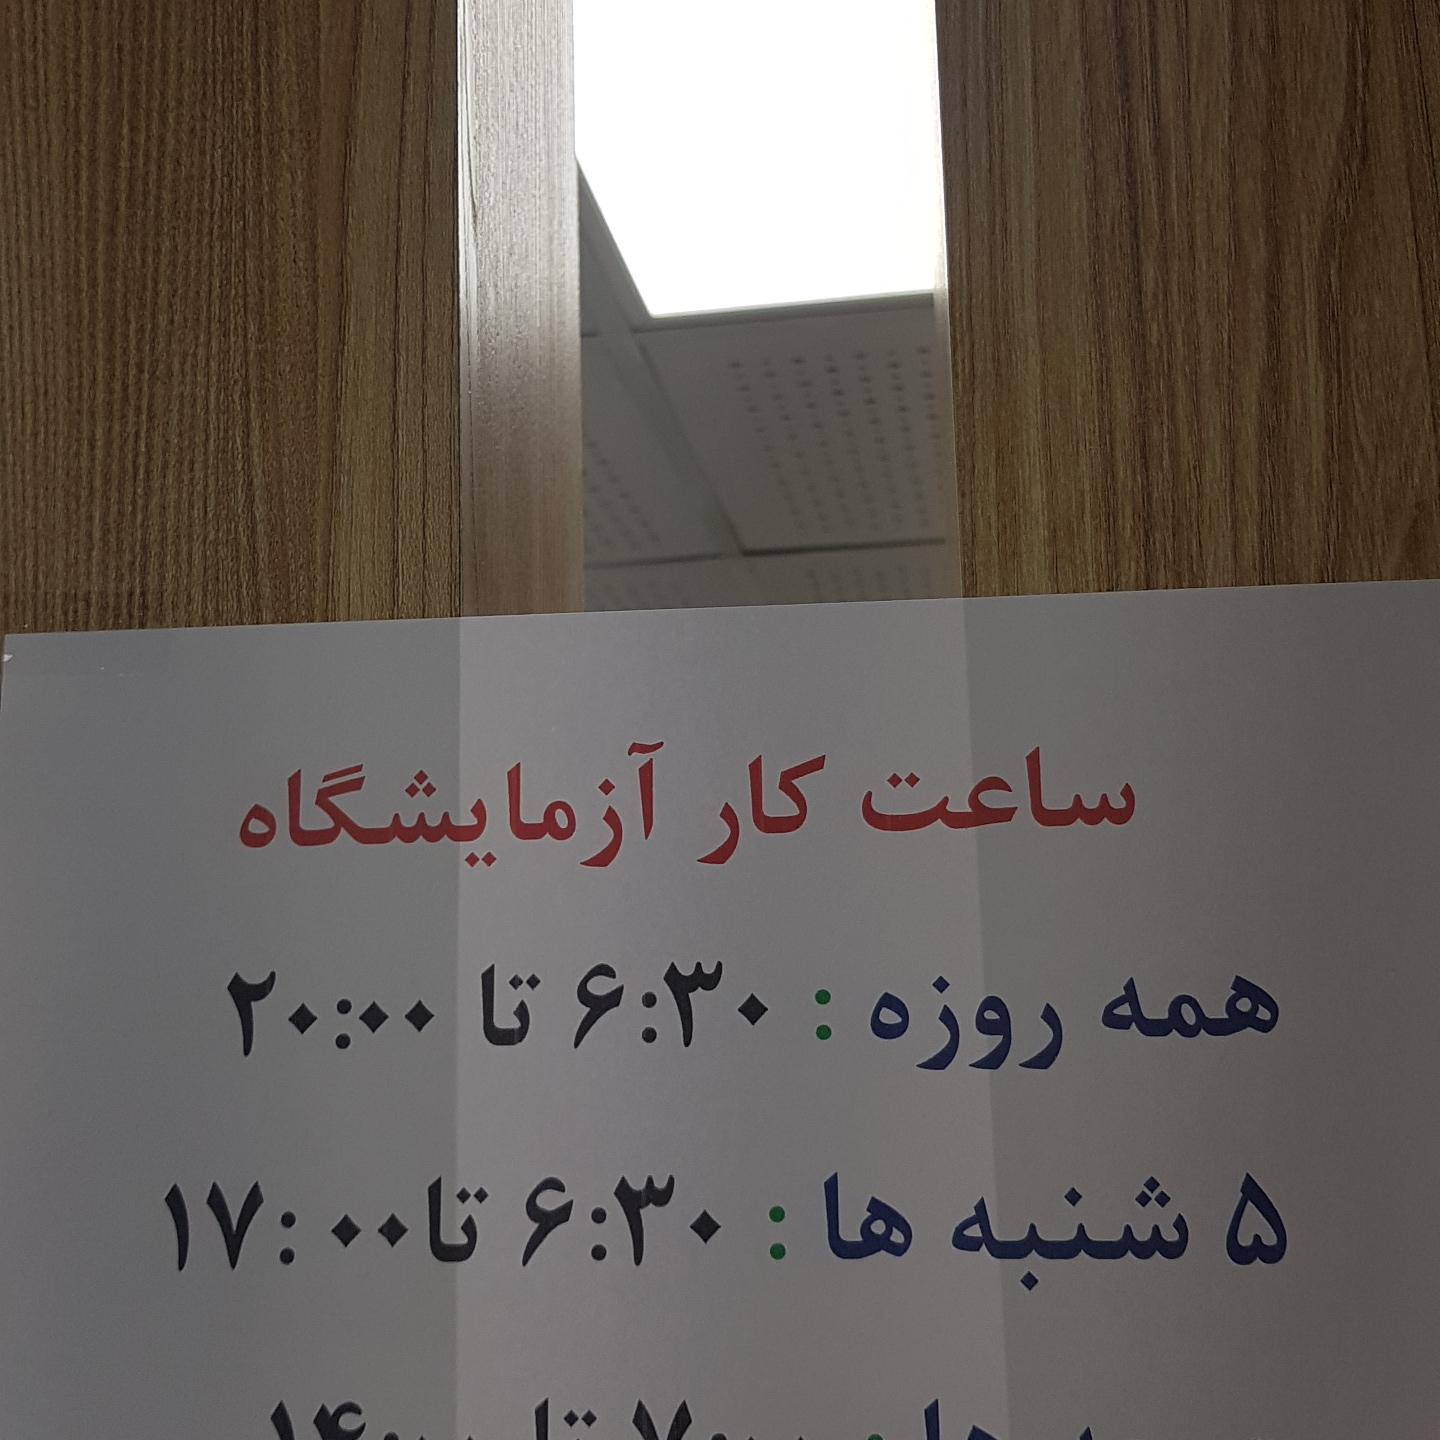 ساعت کار آزمایشگاه
همه روزه : ۶:۳۰ تا ۲۰:۰۰
۵ شنبه ها : ۶:۳۰ تا ۱۷:۰۰
ها : ۷:۰۰ تا ۱۴:۰۰